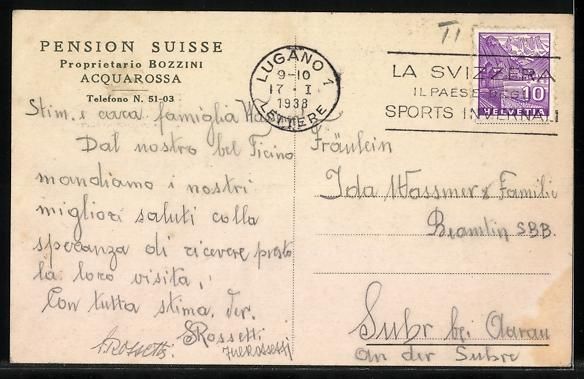 PENSION SUISSE
Proprietario BOZZINI
ACQUAROSSA
Telefono N. 51-03
Stim. e cara famiglia
Dal nostro bel Ticino
mandiamo i nostri
migliori saluti colla
speranza di ricevere presto
la loro visita,
Con tutta stima.
Rossetti
Rossetti
LUGANO 1
9-10
17 · I
1938
LETTERE
LA SVIZZERA
IL PAESE DEGLI
SPORTS INVERNALI
10
HELVETIA
Fräulein
Ida Wassmer & Familie
Beamtin SBB.
Suhr bei Aarau
an der Suhre